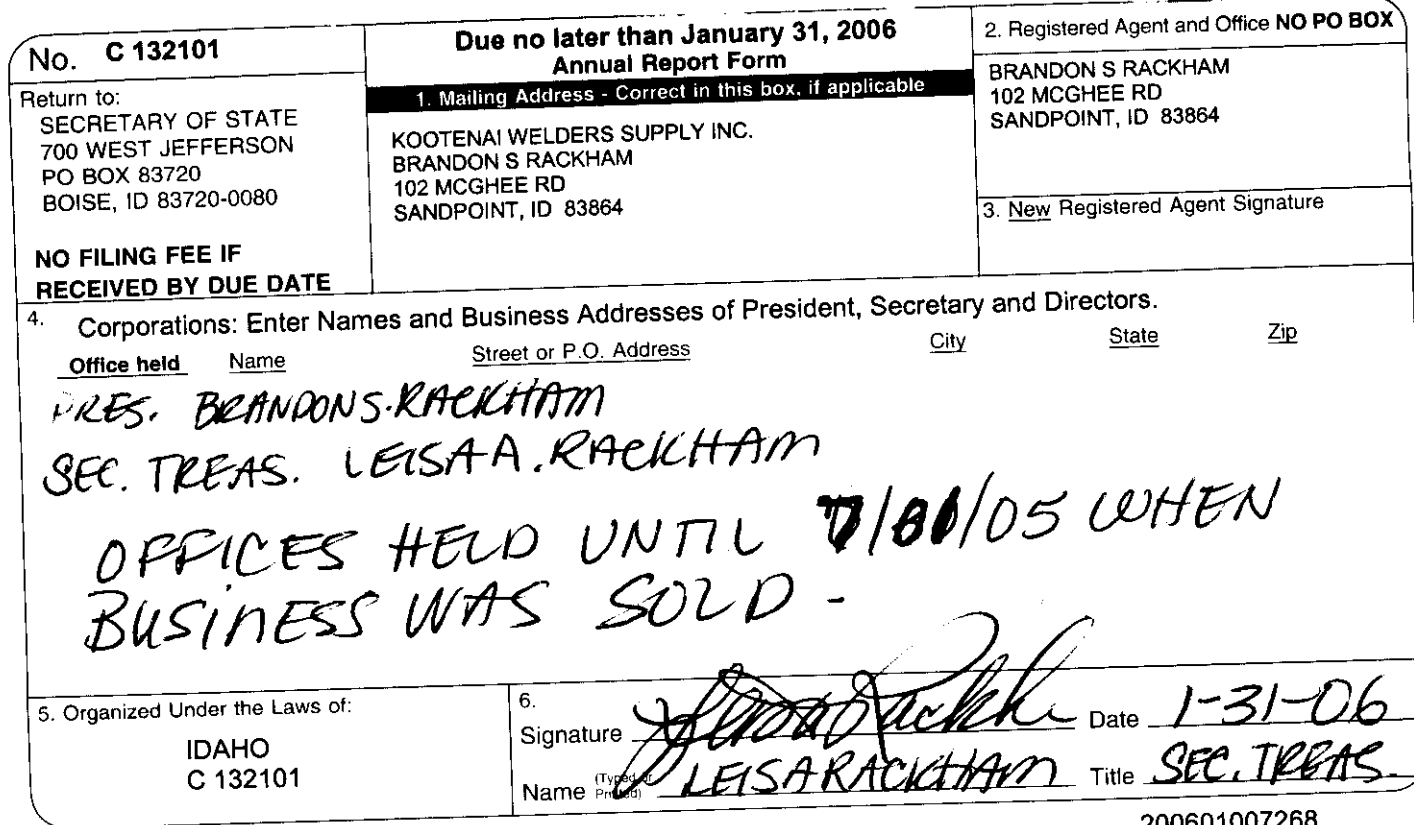 No. C 132101
Return to:
SECRETARY OF STATE
700 WEST JEFFERSON
PO BOX 83720
BOISE, ID 83720-0080
NO FILING FEE IF
RECEIVED BY DUE DATE
Due no later than January 31, 2006
Annual Report Form
1. Mailing Address - Correct in this box, if applicable
KOOTENAI WELDERS SUPPLY INC.
BRANDON S RACKHAM
102 MCGHEE RD
SANDPOINT, ID 83864
2. Registered Agent and Office NO PO BOX
BRANDON S RACKHAM
102 MCGHEE RD
SANDPOINT, ID 83864
3. New Registered Agent Signature
4. Corporations: Enter Names and Business Addresses of President, Secretary and Directors.
Office held Name Street or P.O. Address City State Zip
PRES. BRANDON S. RACKHAM
SEC. TREAS. LEISA A. RACKHAM
OFFICES HELD UNTIL /05 WHEN
BUSINESS WAS SOLD -
5. Organized Under the Laws of:
IDAHO
C 132101
6.
Signature Leisa Rackh Date 1-31-06
Name (Typed or Printed) LEISA RACKHAM Title SEC. TREAS.
200601007268